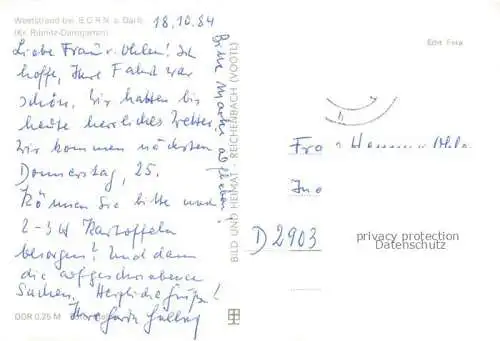 Weststrand bei BORN a. Darß
(Kr. Ribnitz-Damgarten)
18.10.84
Liebe Frau v. Ahlen! Ich
hoffe, Ihre Fahrt war
schön. Wir hatten bis
heute herrliches Wetter.
Wir kommen nächsten
Donnerstag, 25.
Können Sie bitte rund
2-3 kg Kartoffeln
besorgen? Und dann
die aufgeschriebenen
Sachen. Herzliche Grüße!
Ihre
DDR 0,25 M
Bitte Marke ablösen!
BILD UND HEIMAT · REICHENBACH (VOGTL)
Echt Foto
D 2903
privacy protection
Datenschutz